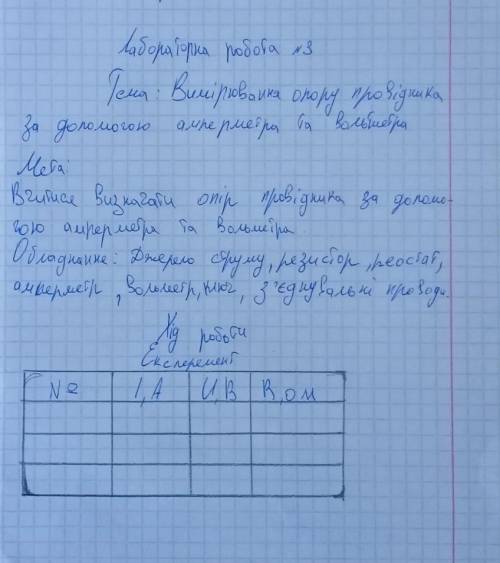 Лабораторна робота №3
Тема: Вимірювання опору провідника
за допомогою амперметра та вольтметра
Мета:
Вчитися визначати опір провідника за допомо-
гою амперметра та вольметра.
Обладнання: Джерело струму, резистор, реостат,
амперметр, вольметр, ключ, з'єднувальні проводи.
Хід роботи
Експеремент
№ I, A U, B R, ом